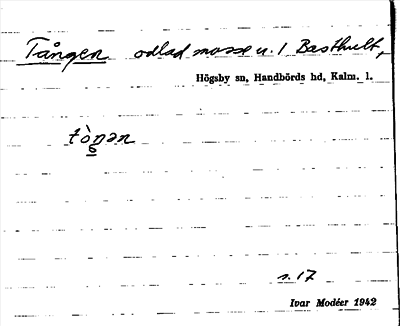 Tången odlad mosse u. 1 Basthult,
Högsby sn, Handbörds hd, Kalm. l.
tòŋən
s. 17
Ivar Modéer 1942